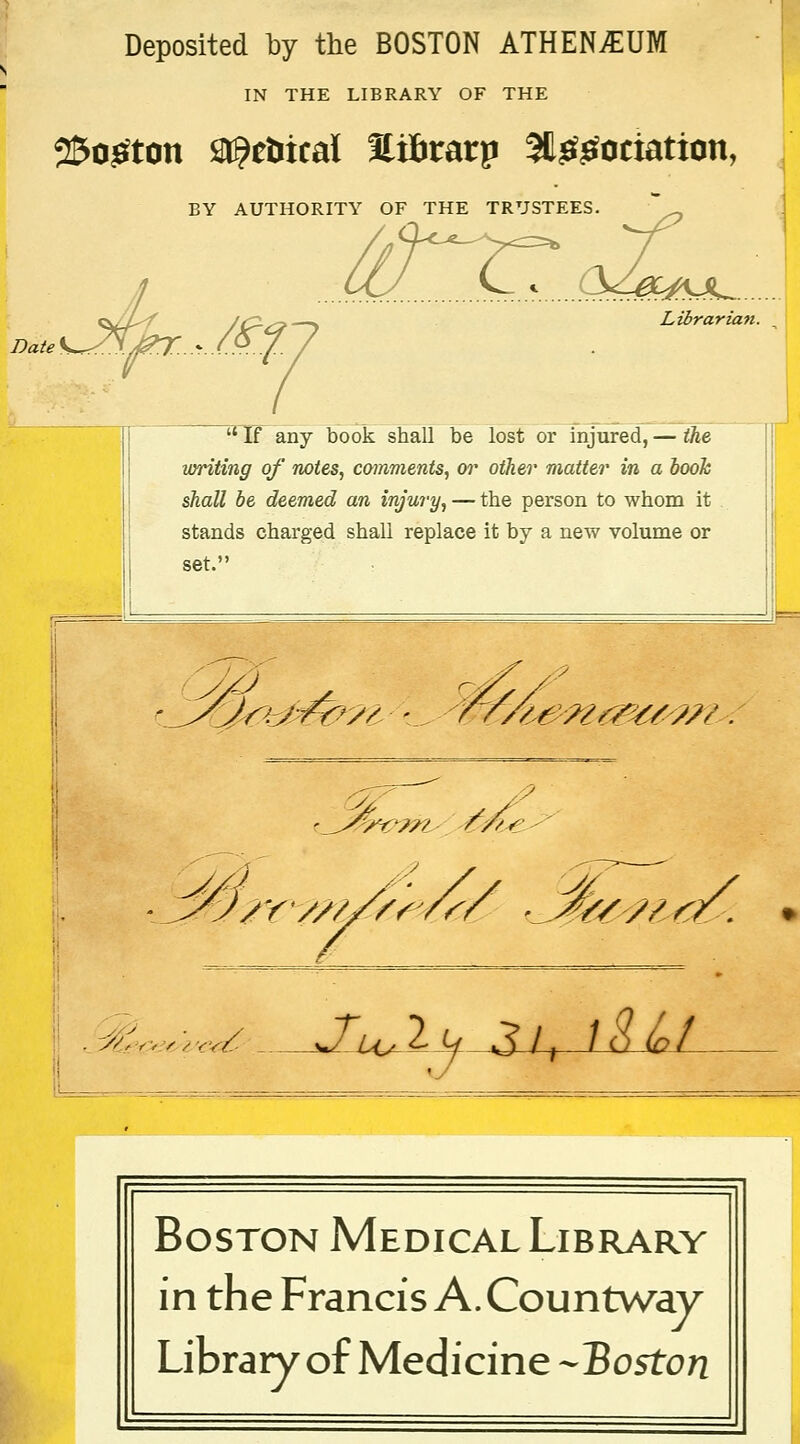 Deposited by the BOSTON ATHENÆUM
IN THE LIBRARY OF THE
Boston Medical Library Association,
BY AUTHORITY OF THE TRUSTEES.
Wm C. Lane
Librarian.
Date Apr. 1897
“If any book shall be lost or injured,—the
writing of notes, comments, or other matter in a book
shall be deemed an injury,—the person to whom it
stands charged shall replace it by a new volume or
set.”
Boston Athenæum.
From the
Bromfield Fund.
Received July 31, 1861
BOSTON MEDICAL LIBRARY
in the Francis A. Countway
Library of Medicine ~ Boston